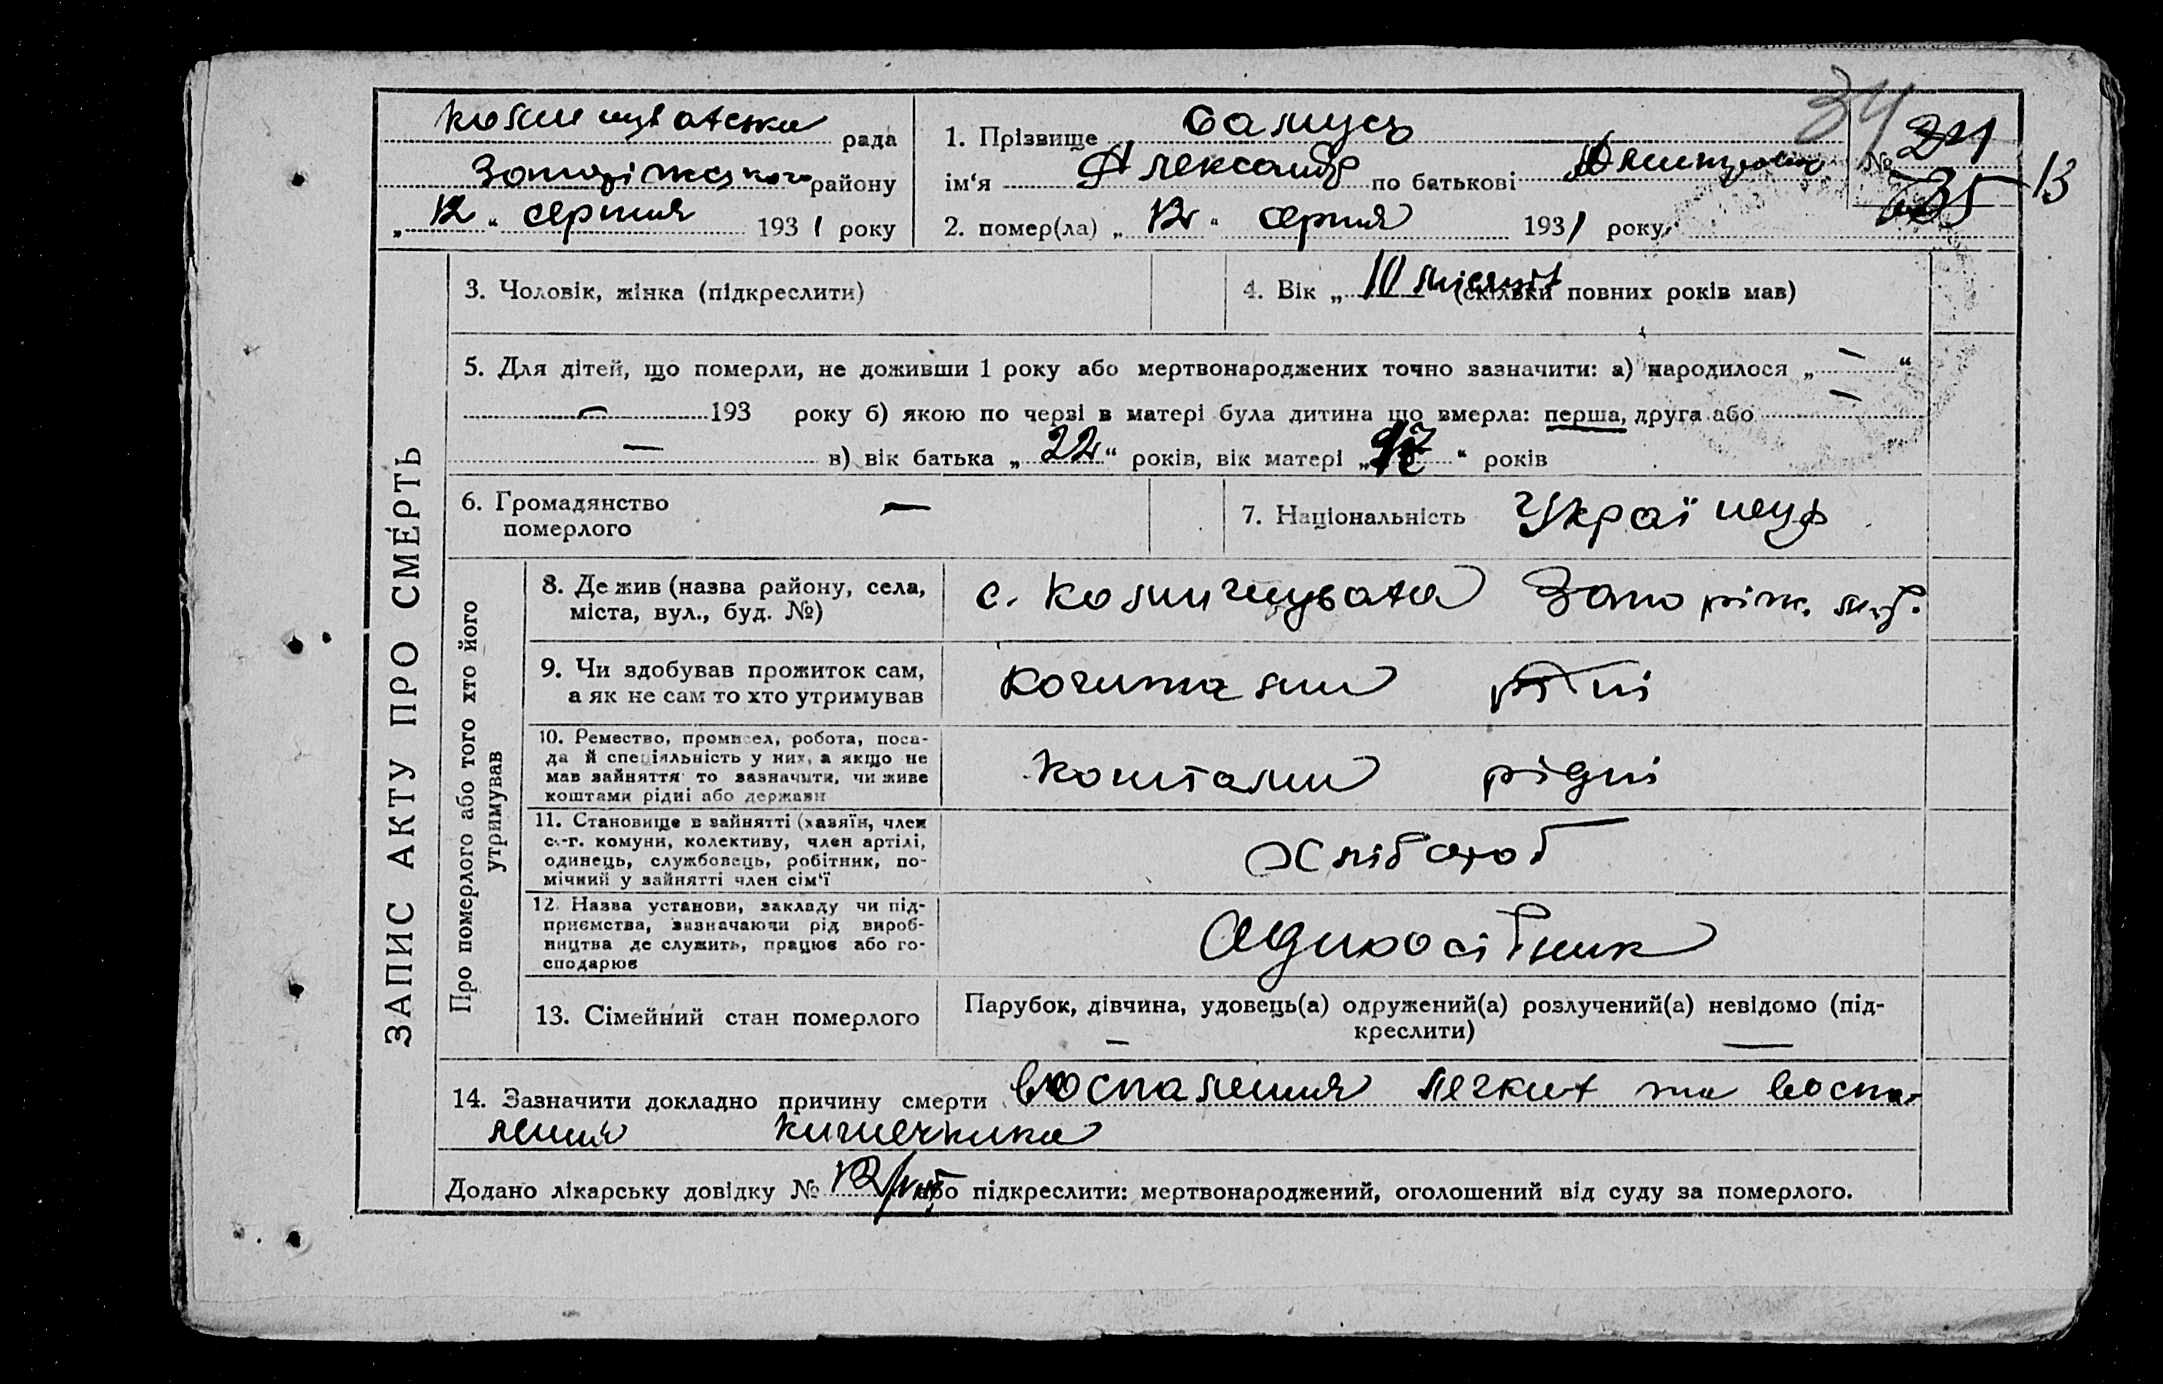 Комишуватська рада
Запоріжського району
„ 12 “ серпня 1931 року
1. Прізвище Самусь
ім‘я Александр по батькові
2. помер(ла) „ 12 “ серпня 1931 року
34
№ 34
35
13
ЗАПИС АКТУ ПРО СМЕРТЬ
3. Чоловік, жінка (підкреслити)
4. Вік „ 10 місяців (скільки повних років мав)
5. Для дітей, що померли, не доживши 1 року або мертвонароджених точно зазначити: а) народилося „ — “
— 193 року б) якою по черзі в матері була дитина що вмерла: перша, друга або —
— в) вік батька „ 22 “ років, вік матері „ “ років
6. Громадянство
померлого —
7. Національність Українец
Про померлого або того хто його
утримував
8. Де жив (назва району, села,
міста, вул., буд. №)
с. Комишувата Запоріж.
9. Чи здобував прожиток сам,
а як не сам то хто утримував
рідні
10. Ремество, промисел, робота, поса-
да й спеціяльність у них, а якщо не
мав зайняття то зазначити, чи живе
коштами рідні або держави
коштами рідні
11. Становище в зайнятті (хазяїн, член
с.-г. комуни, колективу, член артілі,
одинець, службовець, робітник, по-
мічний у зайнятті член сім‘ї
хлібороб
12. Назва установи, закладу чи під-
приємства, зазначаючи рід вироб-
ництва де служить, працює або го-
сподарює
Одноосібник
13. Сімейний стан померлого
Парубок, дівчина, удовець(а) одружений(а) розлучений(а) невідомо (під-
креслити)
14. Зазначити докладно причину смерти воспаления легких та воспа-
ления кишечника
Додано лікарську довідку № 12 або підкреслити: мертвонароджений, оголошений від суду за померлого.